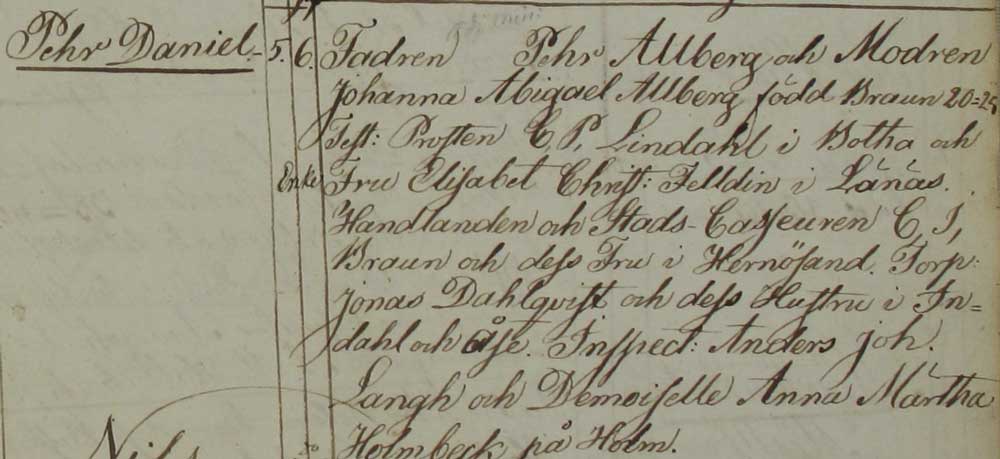 Pehr Daniel 5. 6. Fadren Pehr Allberg och Modren
Johanna Abigael Allberg född Braun 20=25
Test: Prosten C, P, Lindahl i Botha och
Enke Fru Elisabet Christ: Felldin i Länäs.
Handlanden och Stads-Casseuren C, J,
Braun och dess Fru i Hernösand. Torp:
Jonas Dahlqvist och dess Hustru i In=
dahl och åse. Inspect: Anders Joh.
Langh och Demoiselle Anna Märtha
Holmbeck på Holm.
Nils